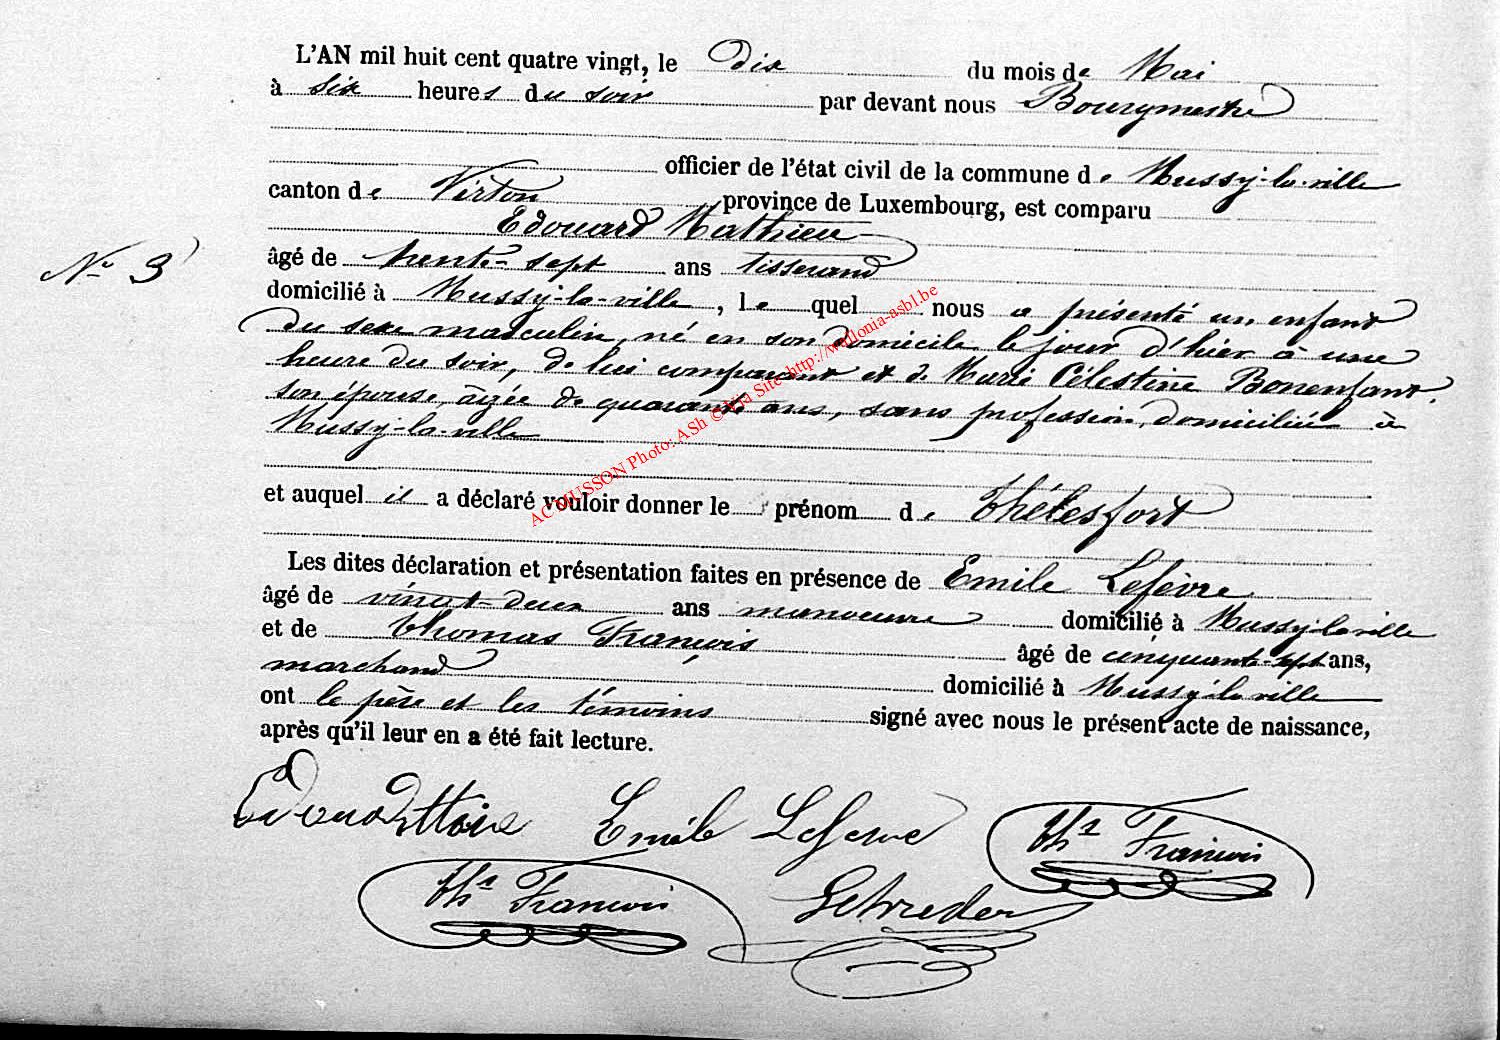 L'AN mil huit cent quatre vingt, le dix du mois de Mai
à six heures du soir par devant nous Bourgmestre
officier de l'état civil de la commune de Mussy-la-ville
canton de Virton province de Luxembourg, est comparu
Edouard Mathieu
N° 9
âgé de trente-sept ans tisserand
domicilié à Mussy-la-ville, lequel nous a présenté un enfant
du sexe masculin, né en son domicile le jour d'hier à une
heure du soir, de lui comparant et de Marie Célestine Bonenfant,
son épouse, âgée de quarante ans, sans profession, domiciliée à
Mussy-la-ville
et auquel il a déclaré vouloir donner le prénom de Thélesfort
Les dites déclaration et présentation faites en présence de Emile Lefèvre
âgé de vingt-deux ans manoeuvre domicilié à Mussy-la-ville
et de Thomas François âgé de cinquante-sept ans,
marchand domicilié à Mussy-la-ville
ont le père et les témoins signé avec nous le présent acte de naissance,
après qu'il leur en a été fait lecture.
Emile Lefevre Ths François
Ths François
AC MUSSON Photo: ASh © Alja Site http://wallonia-asbl.be